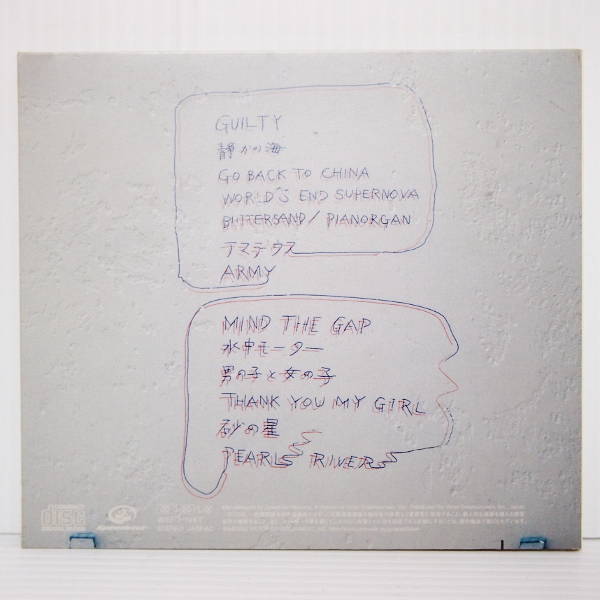 GUILTY
静かの海
GO BACK TO CHINA
WORLD'S END SUPERNOVA
BUTTERSAND/PIANORGAN
アマデウス
ARMY
MIND THE GAP
水中モーター
男の子と女の子
THANK YOU MY GIRL
砂の星
PEARL RIVER
disc